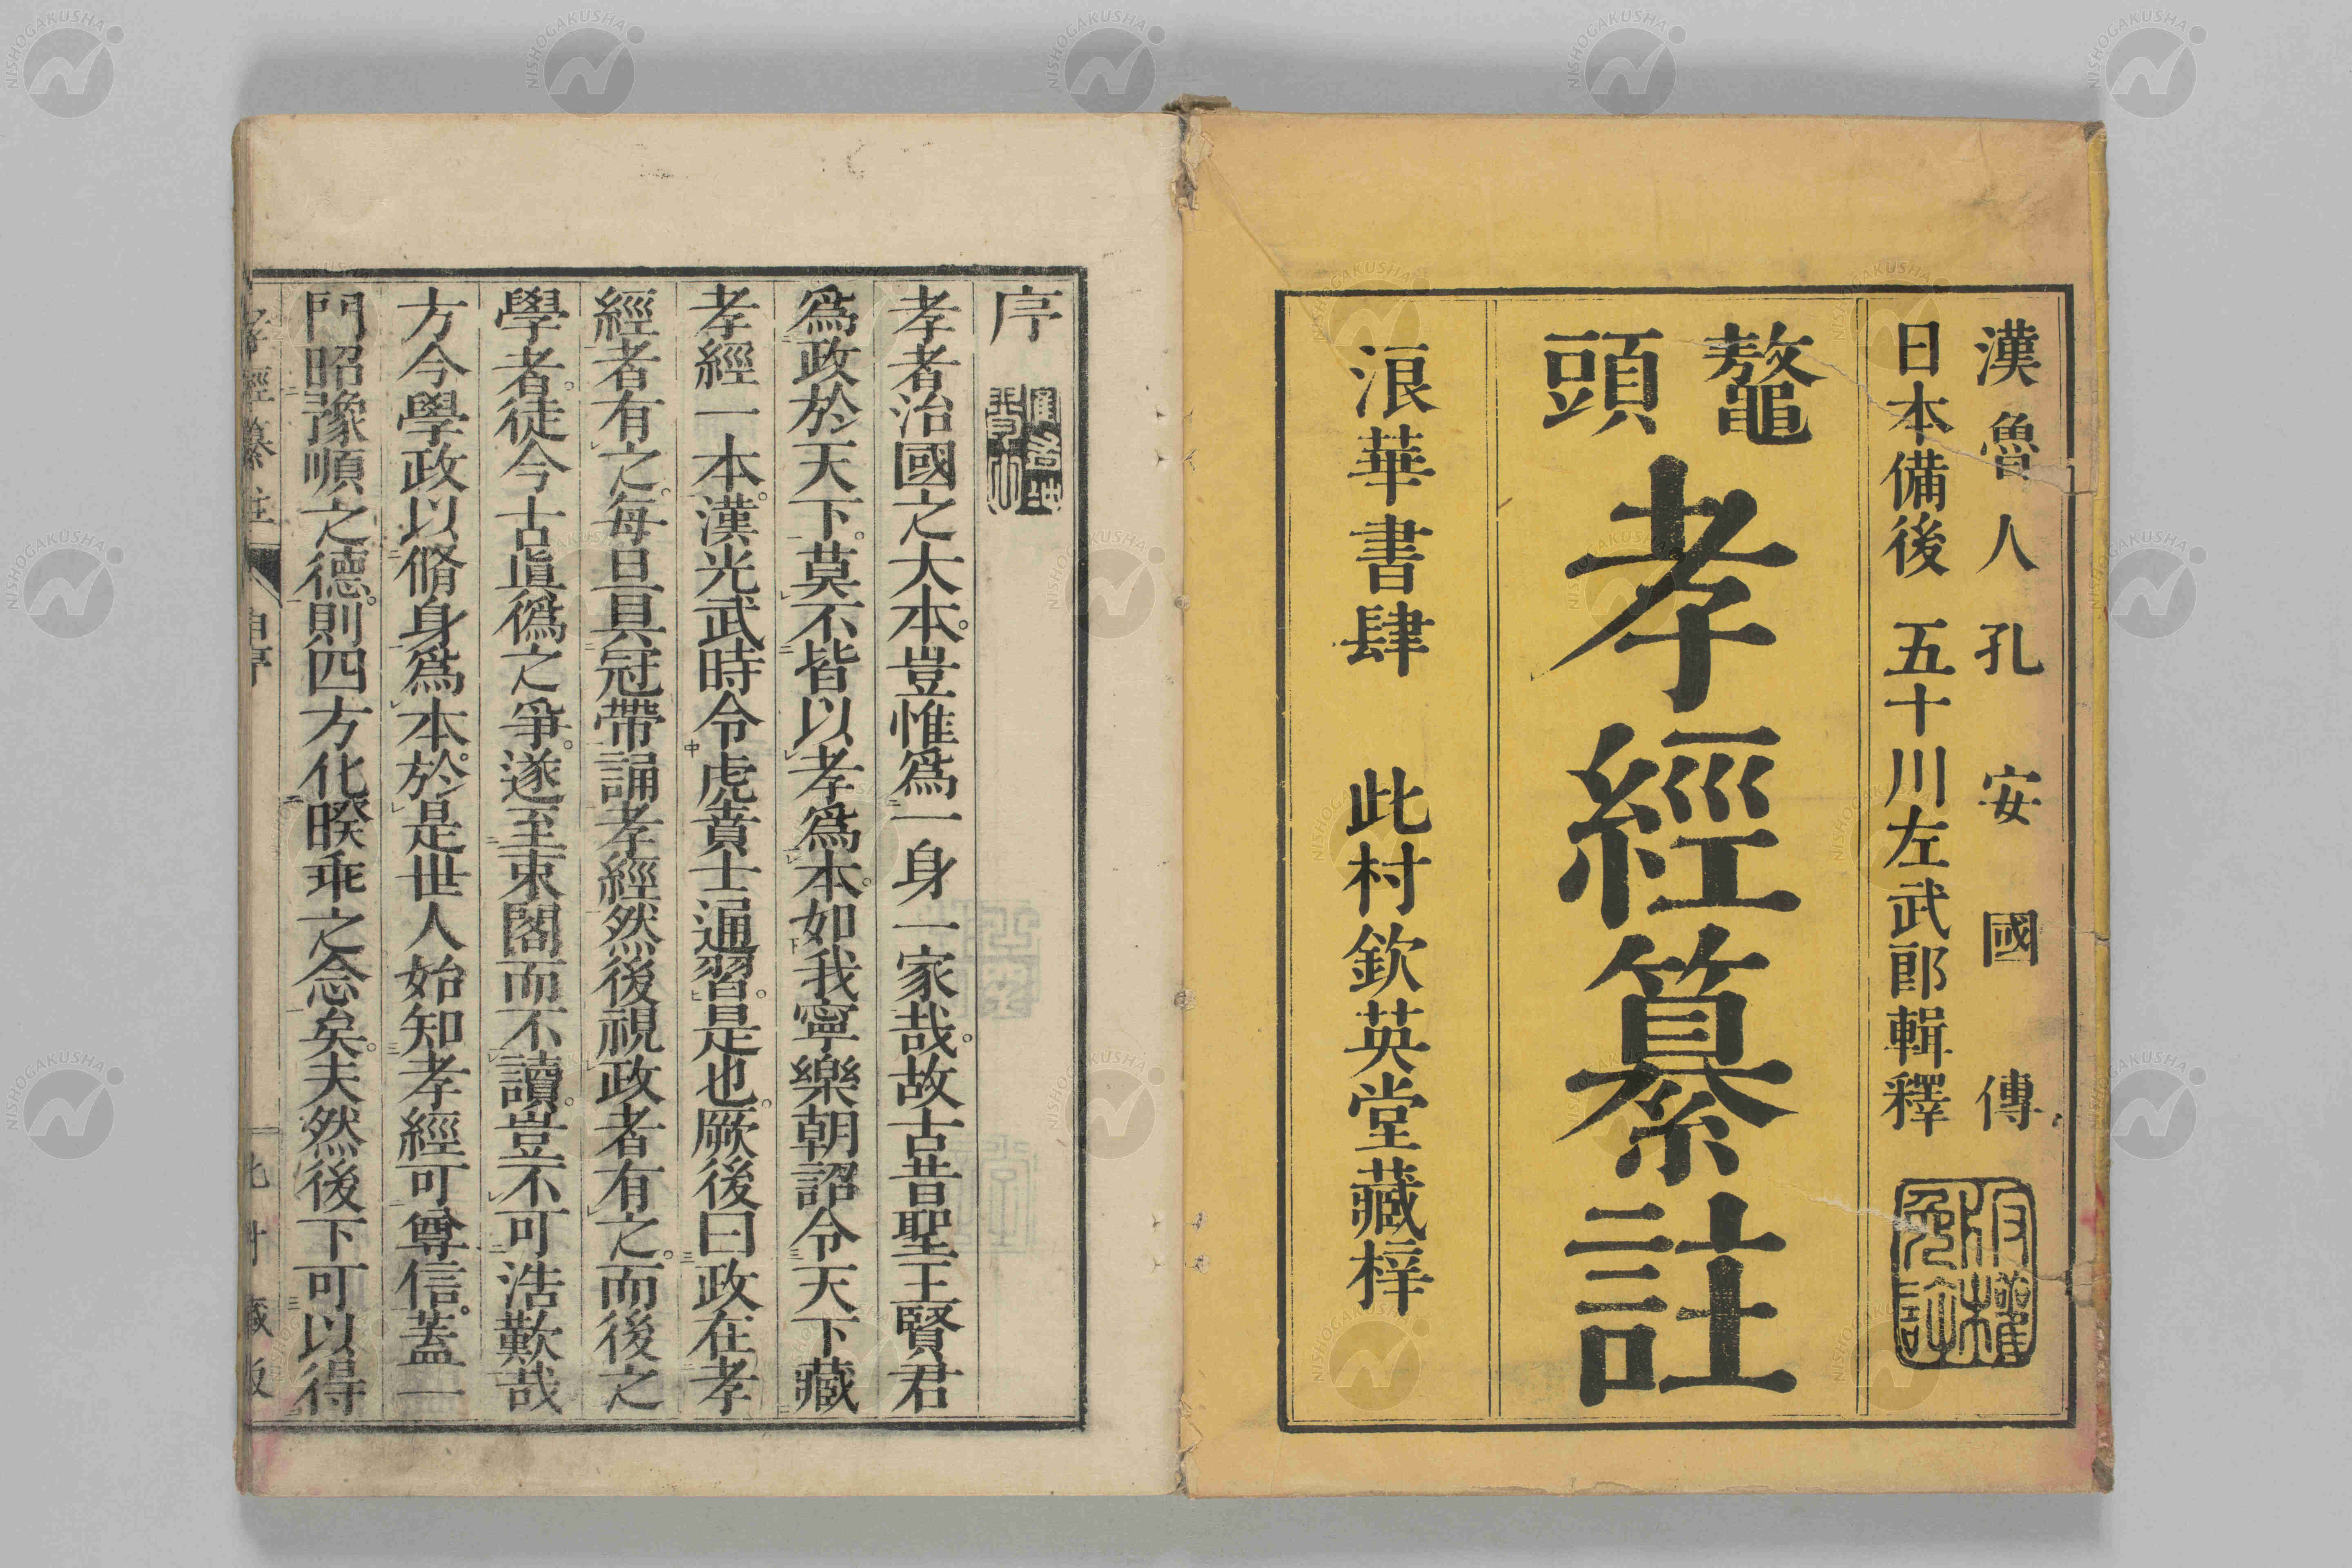 漢魯人孔安國傳
日本備後 五十川左武郎輯釋
版權免許
鼇頭
孝經纂註
浪華書肆 此村欽英堂藏梓
序
孝者治國之大本。豈惟爲一身一家哉。故古昔聖王賢君
爲政於天下。莫不皆以孝爲本。如我寧樂朝詔令天下藏
孝經一本。漢光武時令虎賁士通習。是也。厥後曰政在孝
經者有之。每旦具冠帶誦孝經然後視政者有之。而後之
學者。徒今古眞僞之爭。遂至束閣而不讀。豈不可浩歎哉
方今學政以脩身爲本。於是世人始知孝經可尊信。蓋一
門昭豫順之德。則四方化暌乖之念矣。夫然後下可以得
孝經纂註
自序
此村藏版
NISHOGAKUSHA